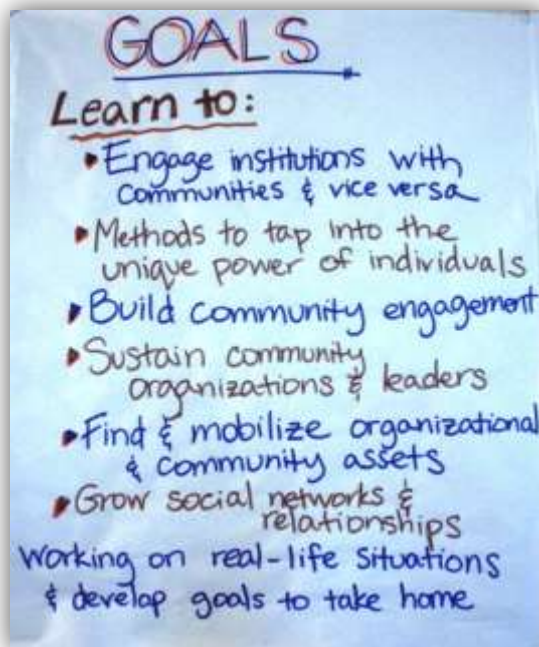 GOALS
Learn to:
• Engage institutions with
communities & vice versa
• Methods to tap into the
unique power of individuals
• Build community engagement
• Sustain community
organizations & leaders
• Find & mobilize organizational
& community assets
• Grow social networks &
relationships
Working on real-life situations
& develop goals to take home